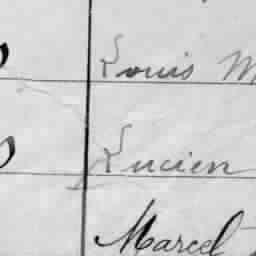 Louis M
Lucien
Marcel